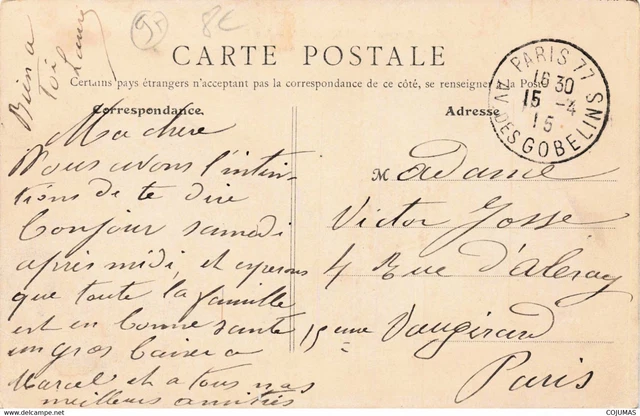 95 8€
CARTE POSTALE
Certains pays étrangers n'acceptant pas la correspondance de ce côté, se renseigner à la Poste
Correspondance.
Adresse
PARIS 77
16 30
15 -4
15
AV. DES GOBELINS
Bien a
Toi
Ma chère
Nous avons l'inten-
tions de te dire
bonjour samedi
après midi, et esperons
que toute la famille
est en bonne sante
un gros baiser a
Marcel et a tous nos
meilleurs amitiés
Madame
Victor Josse
4 Rue d'Aleray
15eme Vaugirard
Paris
COJUMAS
www.delcampe.net